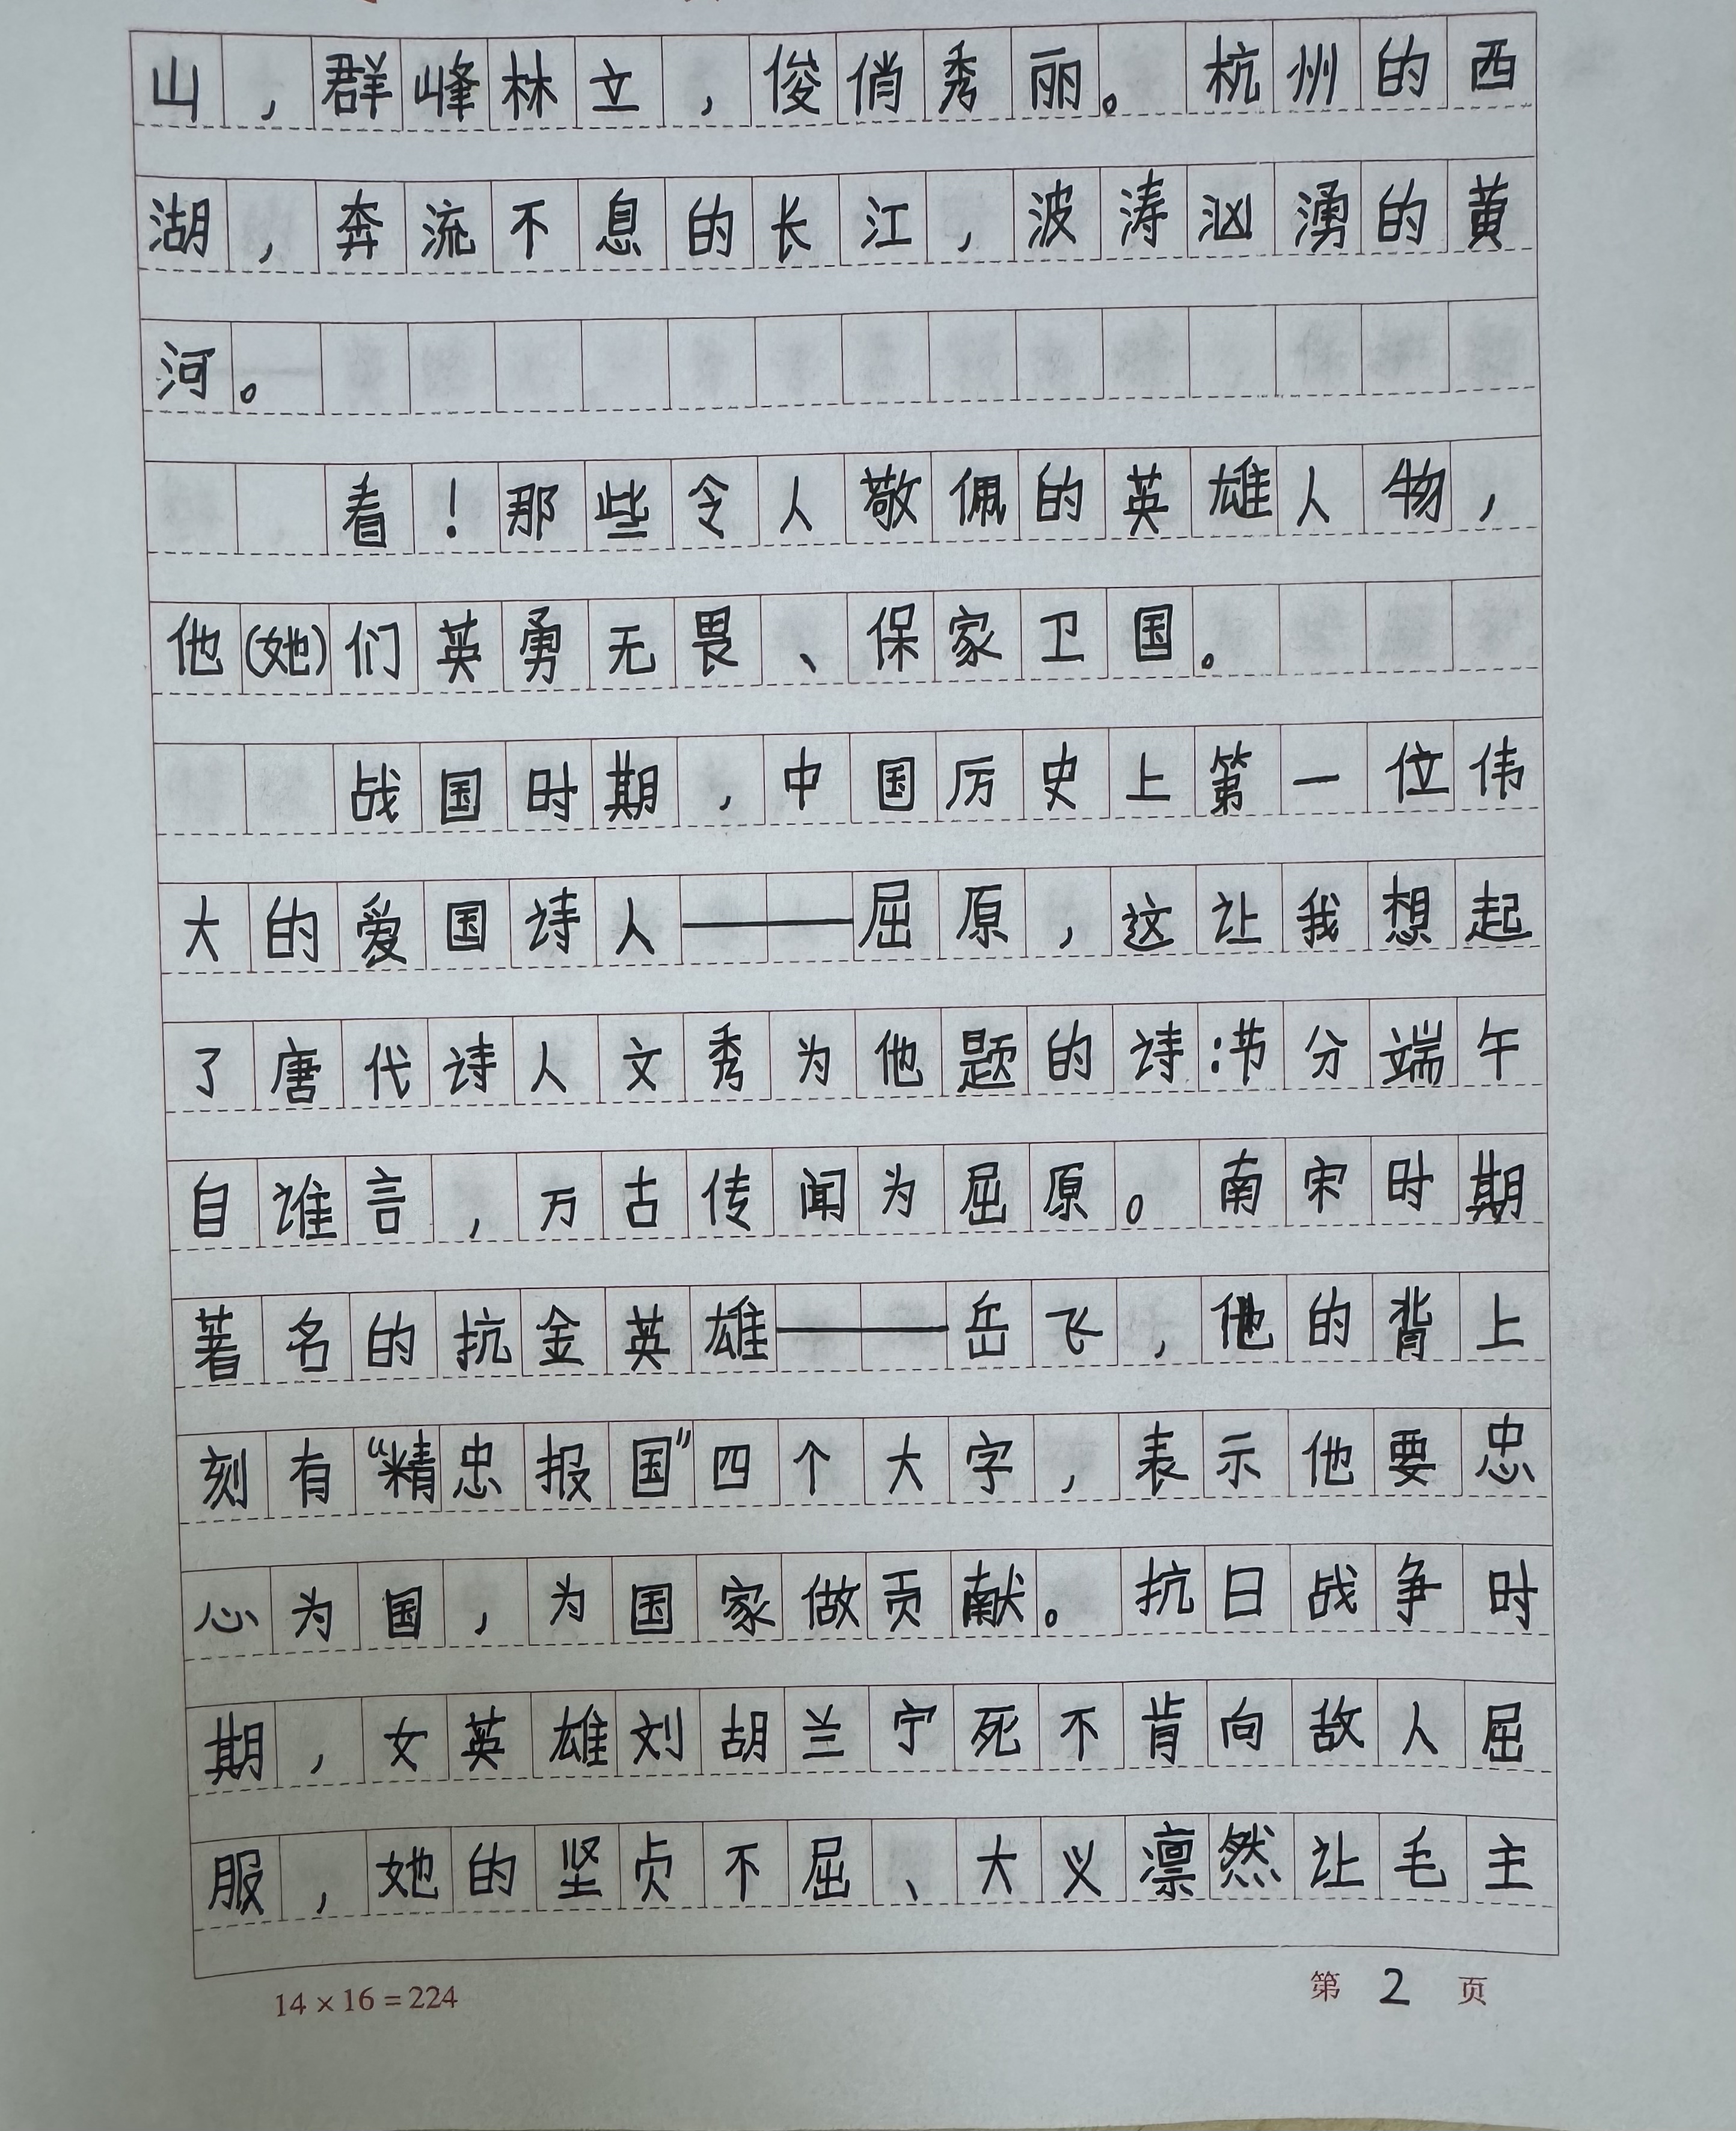 山，群峰林立，俊俏秀丽。杭州的西
湖，奔流不息的长江，波涛汹湧的黄
河。
看！那些令人敬佩的英雄人物，
他(她)们英勇无畏、保家卫国。
战国时期，中国历史上第一位伟
大的爱国诗人——屈原，这让我想起
了唐代诗人文秀为他题的诗:节分端午
自谁言，万古传闻为屈原。南宋时期
著名的抗金英雄——岳飞，他的背上
刻有“精忠报国”四个大字，表示他要忠
心为国，为国家做贡献。抗日战争时
期，女英雄刘胡兰宁死不肯向敌人屈
服，她的坚贞不屈、大义凛然让毛主
14×16=224
第 2 页